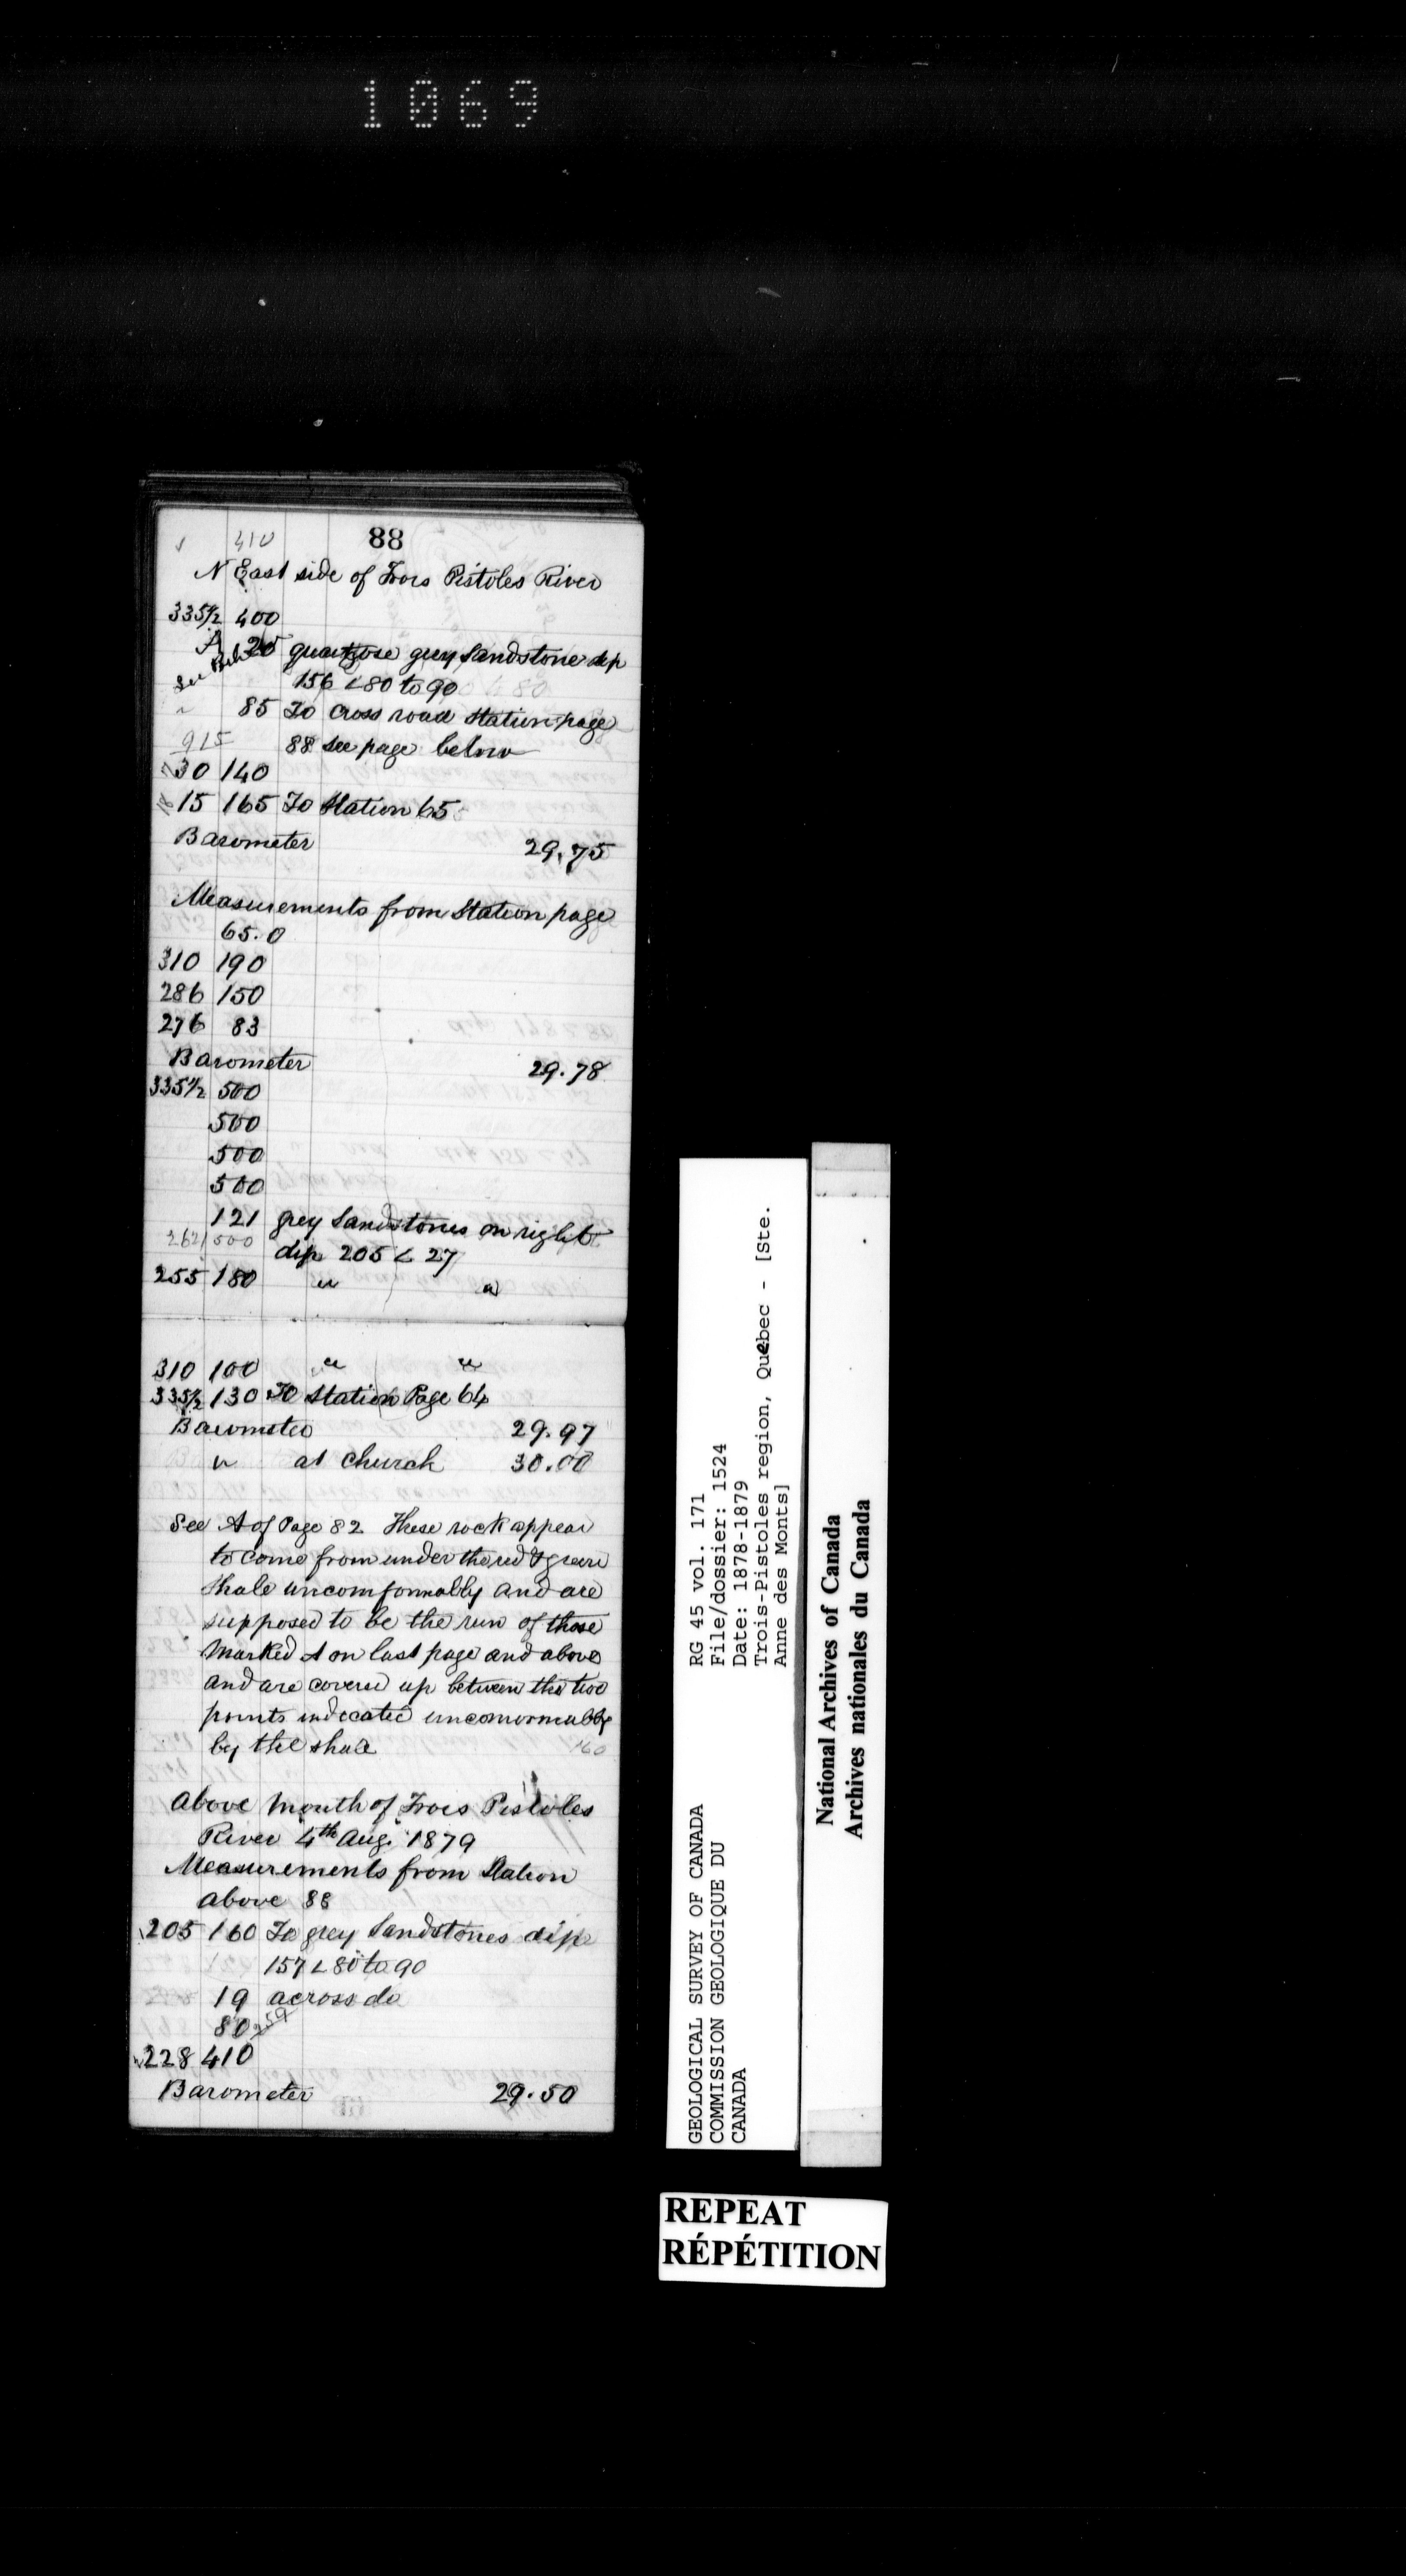 1069
410 88
N East side of Trois Pistoles River
335 1/2 400
A 25 quartzose grey Sandstone dip
See Below
156 < 80 to 90
" 85 To Cross road Station page
915 88 see page below
30 140
15 165 To Station 65
Barometer 29.75
Measurements from Station page
65.0
310 190
286 150
276 83
Barometer 29.78
335 1/2 500
500
500
500
121 grey Sandstones on right
262 1500 dip 205 < 27
255 180 " "
310 100 " "
335 1/2 130 To Station Page 64
Barometer 29.97
" at Church 30.00
See A of Page 82 These rock appear
to come from under the red & green
shale uncomformably and are
supposed to be the run of those
marked A on last page and above
and are covered up between the two
points indicated unconormably
by the shale 160
Above mouth of Trois Pistoles
River 4th Aug. 1879
Measurements from Station
above 88
205 160 To grey Sandstones dip
157 < 80 to 90
19 across do
80 259
228 410
Barometer 29.50
GEOLOGICAL SURVEY OF CANADA
COMMISSION GEOLOGIQUE DU
CANADA
RG 45 vol. 171
File/dossier: 1524
Date: 1878-1879
Trois-Pistoles region, Quebec - [Ste.
Anne des Monts]
National Archives of Canada
Archives nationales du Canada
REPEAT
RÉPÉTITION